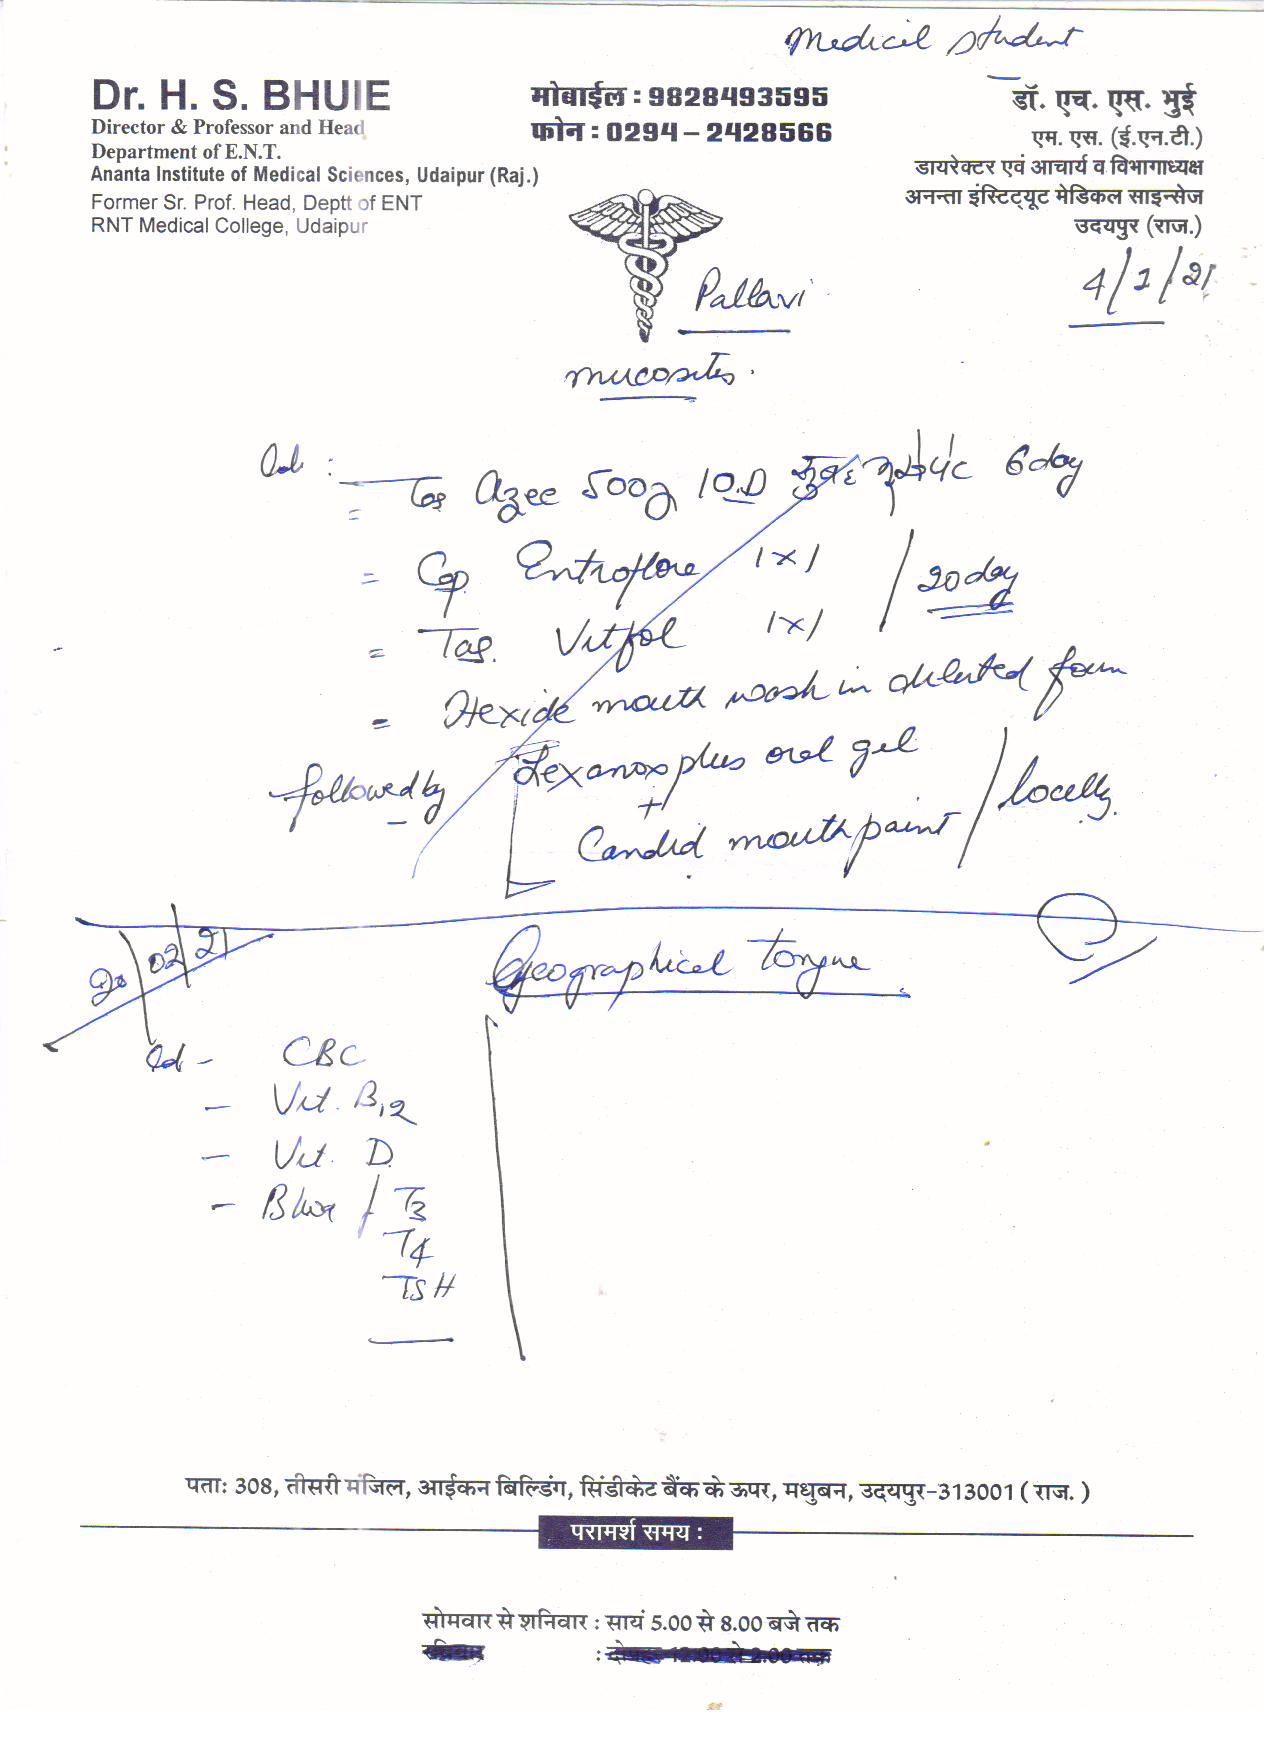 Medicil student
Dr. H. S. BHUIE
Director & Professor and Head
Department of E.N.T.
Ananta Institute of Medical Sciences, Udaipur (Raj.)
Former Sr. Prof. Head, Deptt of ENT
RNT Medical College, Udaipur
मोबाईल : 9828493595
फोन : 0294 – 2428566
डॉ. एच. एस. भुई
एम. एस. (ई.एन.टी.)
डायरेक्टर एवं आचार्य व विभागाध्यक्ष
अनन्ता इंस्टिट्यूट मेडिकल साइन्सेज
उदयपुर (राज.)
4/1/21
Pallavi
mucositis.
Tab Azee 500g 1O.D 6day
= Cap. Entroflore 1x1
20day
= Tab. Vitfol 1x1
= Hexide mouth wash in diluted form
followed by Lexanox plus oral gel
+
Candid mouth paint / locally
02/21
Geographicel tongue
Ad - CBC
- Vit. B12
- Vit. D
- T3
T4
TSH
पता: 308, तीसरी मंजिल, आईकन बिल्डिंग, सिंडीकेट बैंक के ऊपर, मधुबन, उदयपुर-313001 ( राज. )
परामर्श समय :
सोमवार से शनिवार : सायं 5.00 से 8.00 बजे तक